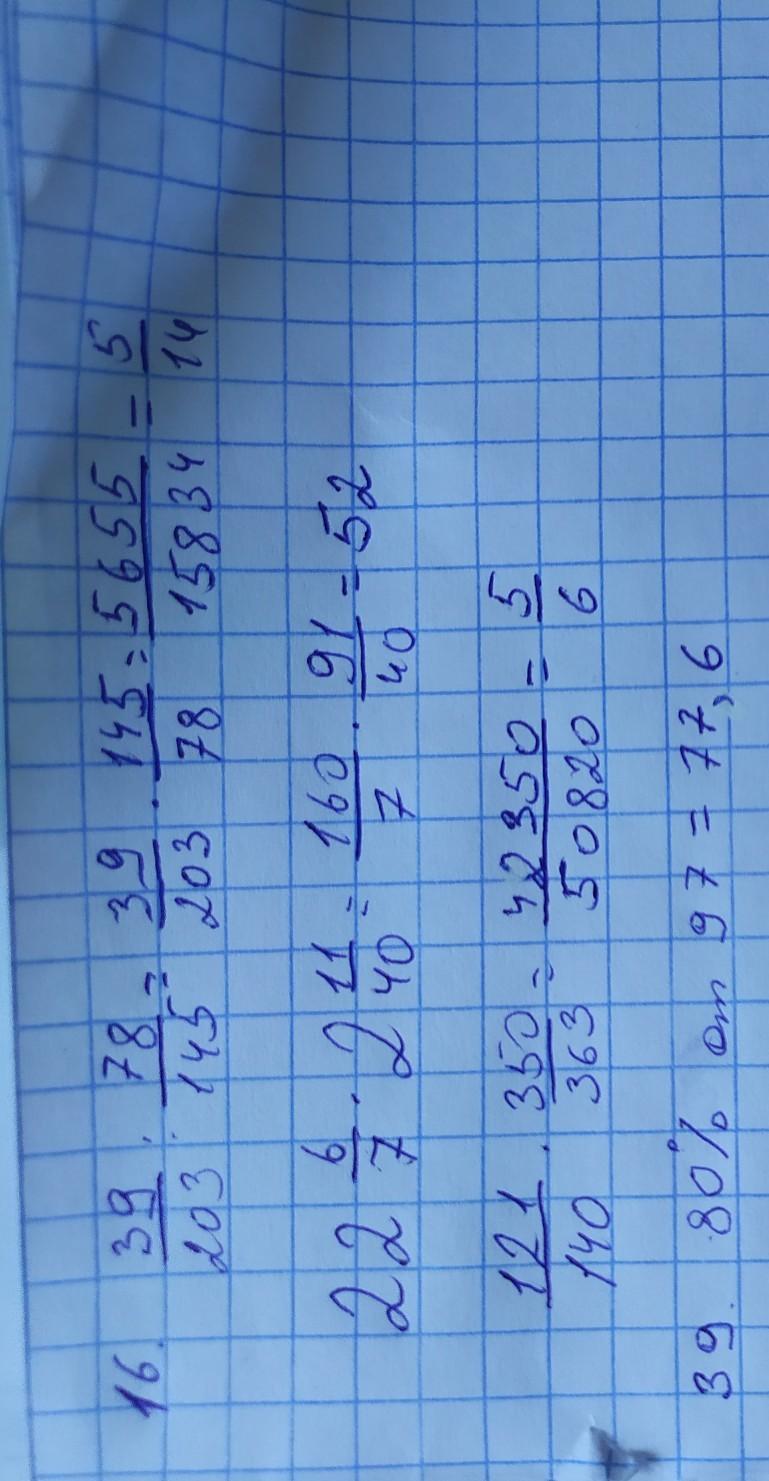 16. 39/203 : 78/145 = 39/203 · 145/78 = 5655/15834 = 5/14
22 6/7 · 2 11/40 = 160/7 · 91/40 = 52
121/140 · 350/363 = 42350/50820 = 5/6
39. 80% от 97 = 77,6